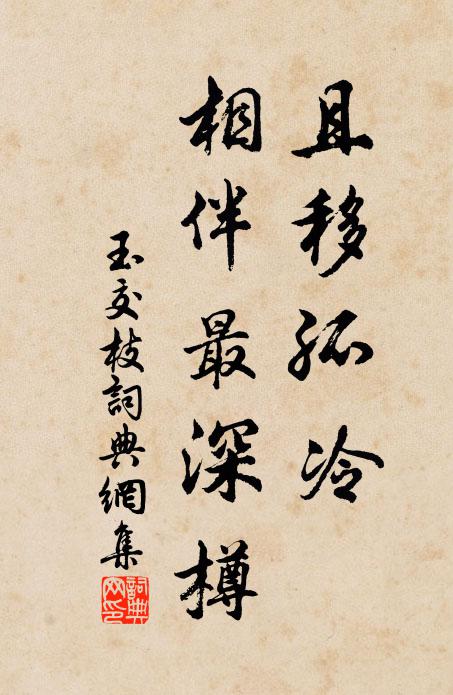 且移孤冷
相伴最深樽
玉交枝詞典網集
詞典網印